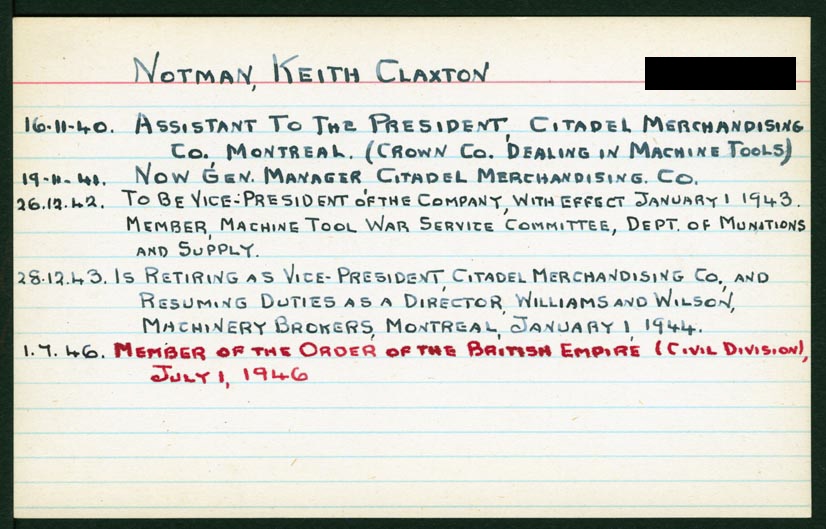 NOTMAN, KEITH CLAXTON
16-11-40. ASSISTANT TO THE PRESIDENT, CITADEL MERCHANDISING
CO., MONTREAL. (CROWN CO. DEALING IN MACHINE TOOLS)
19-11-41. NOW GEN. MANAGER CITADEL MERCHANDISING. CO.
26.12.42. TO BE VICE-PRESIDENT OF THE COMPANY, WITH EFFECT JANUARY 1 1943.
MEMBER, MACHINE TOOL WAR SERVICE COMMITTEE, DEPT. OF MUNITIONS
AND SUPPLY.
28.12.43. IS RETIRING AS VICE-PRESIDENT, CITADEL MERCHANDISING CO., AND
RESUMING DUTIES AS A DIRECTOR, WILLIAMS AND WILSON,
MACHINERY BROKERS, MONTREAL, JANUARY 1, 1944.
1.7.46. MEMBER OF THE ORDER OF THE BRITISH EMPIRE (CIVIL DIVISION),
JULY 1, 1946